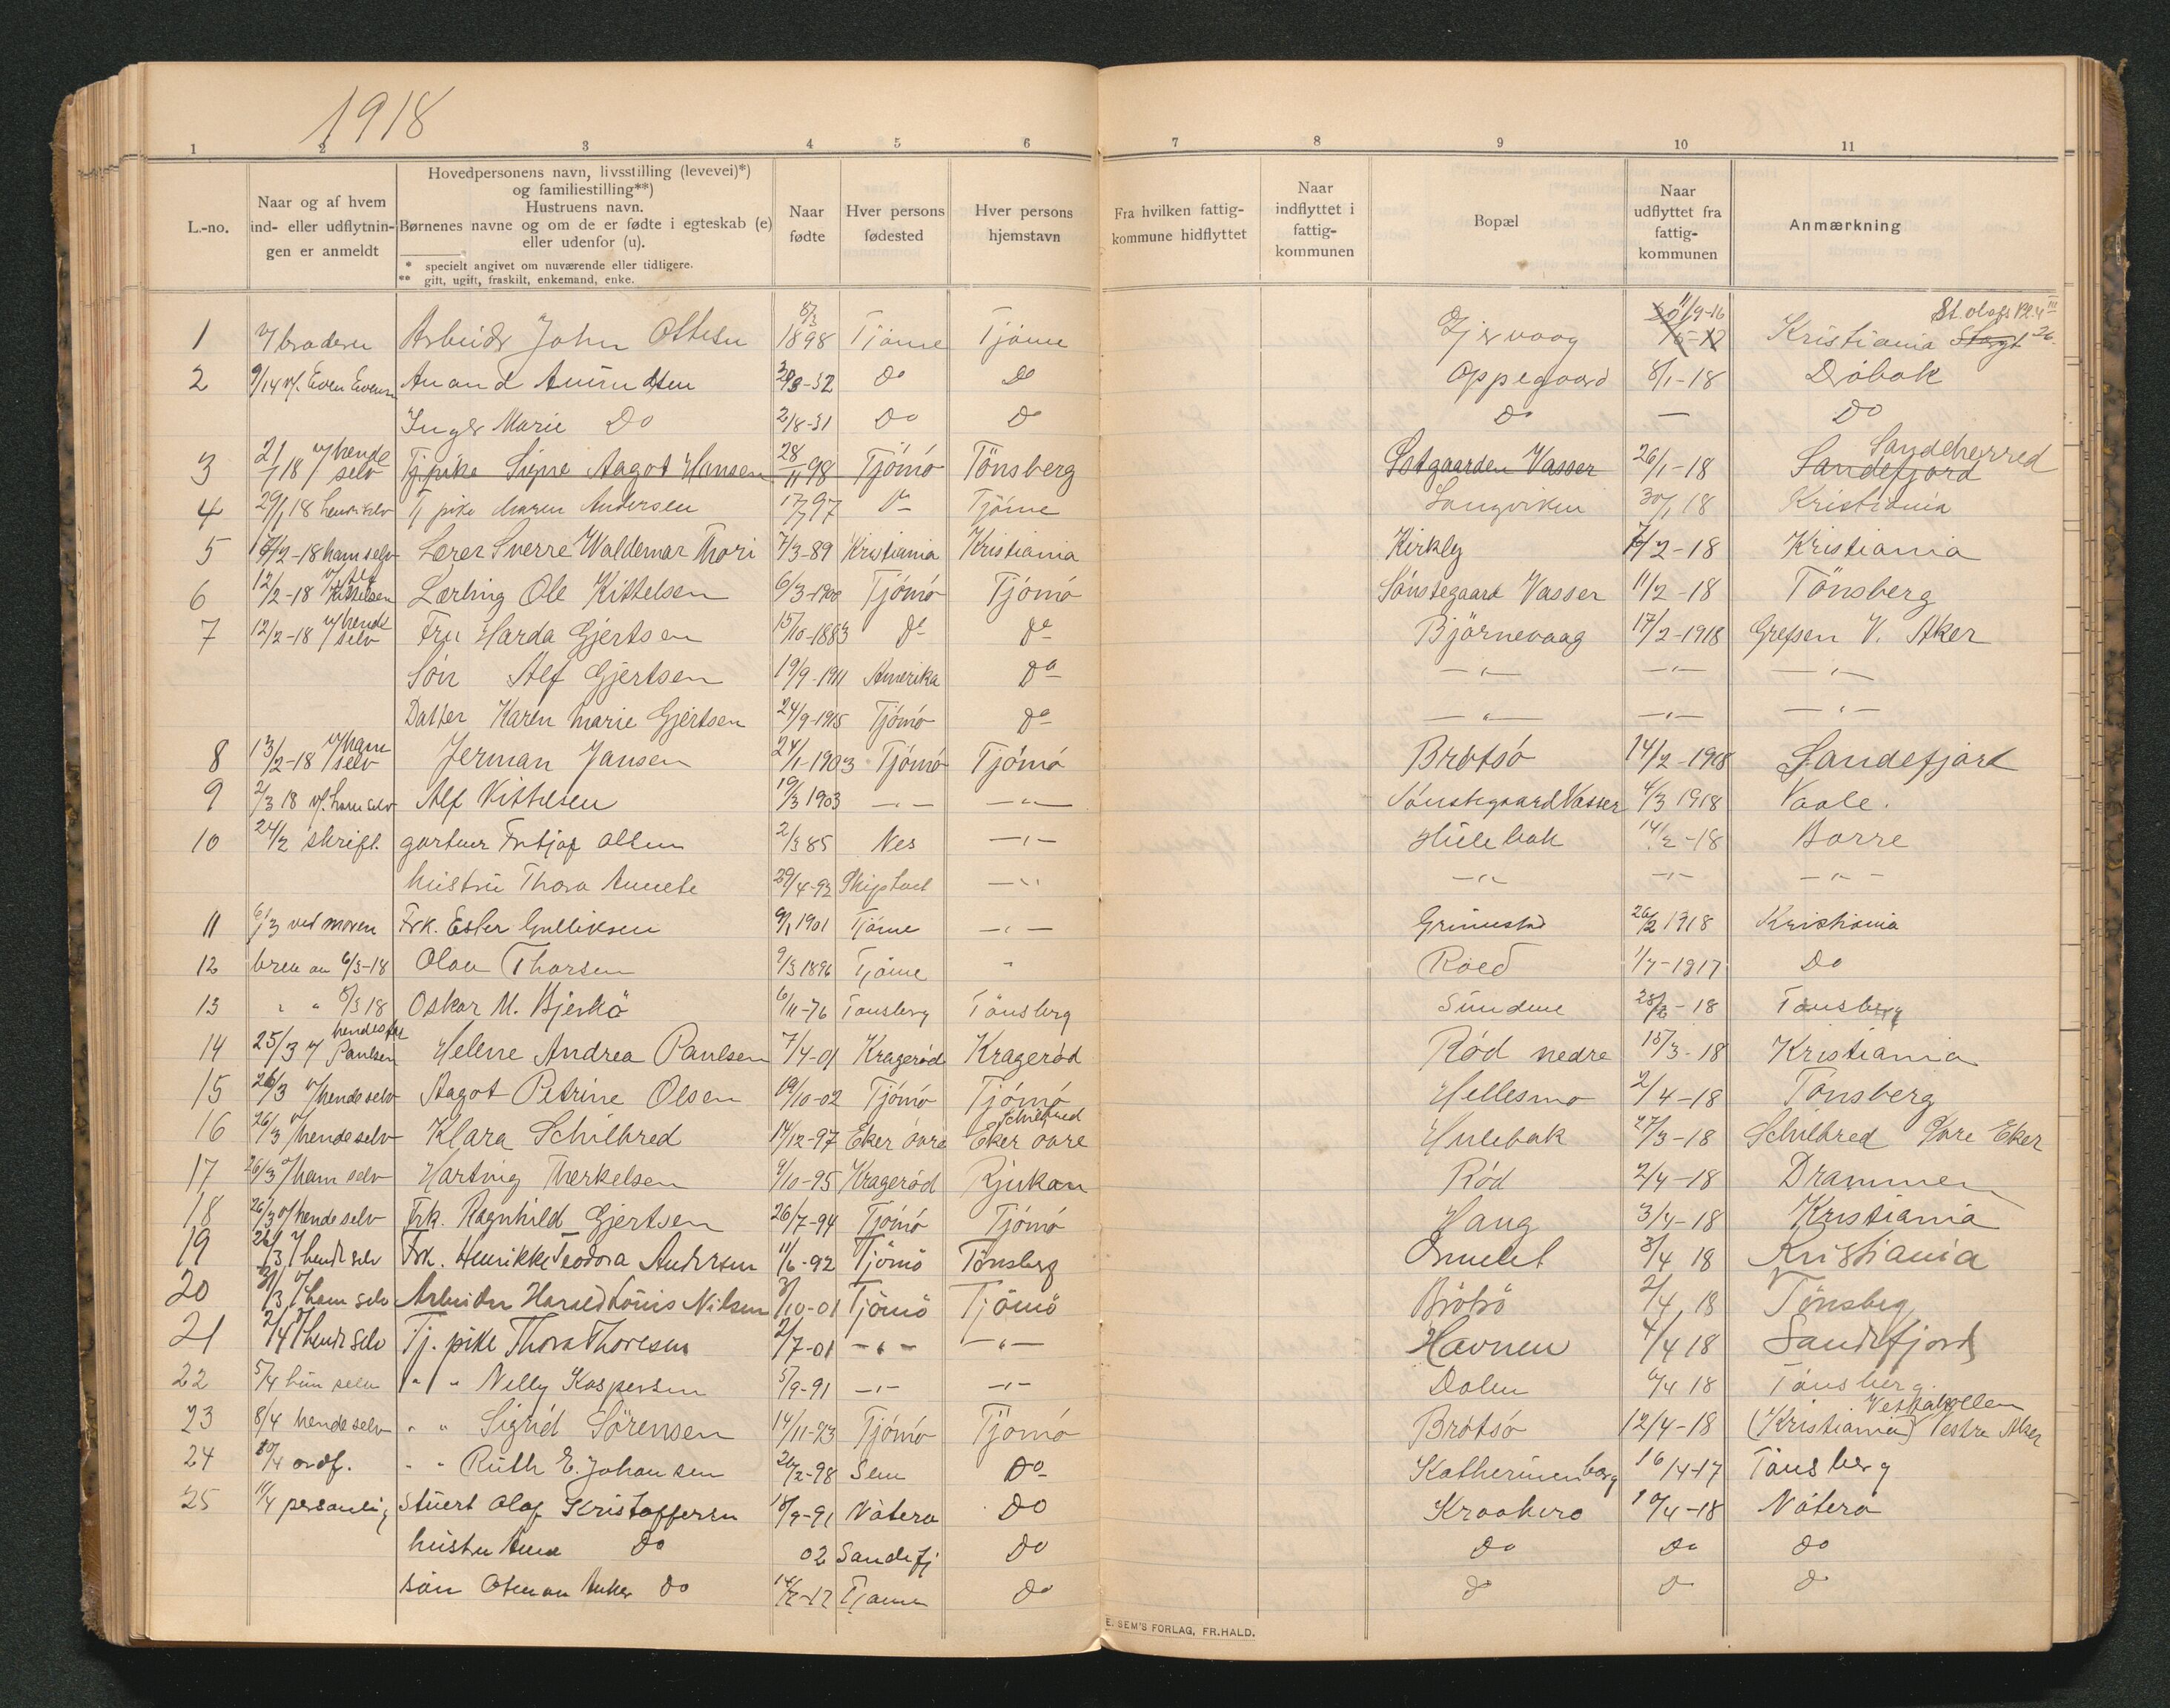 1918
1 2 3 4 5 6 7 8 9 10 11
L.-no.
Naar og af hvem
ind- eller udflytnin-
gen er anmeldt
Hovedpersonens navn, livsstilling (levevei)*)
og familiestilling**)
Hustruens navn.
Børnenes navne og om de er fødte i egteskab (e)
eller udenfor (u).
* specielt angivet om nuværende eller tidligere.
** gift, ugift, fraskilt, enkemand, enke.
Naar
fødte
Hver persons
fødested
Hver persons
hjemstavn
Fra hvilken fattig-
kommune hidflyttet
Naar
indflyttet i
fattig-
kommunen
Bopæl
Naar
udflyttet fra
fattig-
kommunen
Anmærkning
1 v/ broderen Arbeider John Ottesen 8/3 1898 Tjöme Tjöme 11/9-16 Kristiania St. olafs
2 9/14 v/. Even Evensen Anand Amundsen -32 do Do Oppegaard 8/1-18 Dröbak
Inger Marie Do 2/8-31 Do Do Do — Do
3 2/1 18 v/ hende selv Tj pike Signe Aagot Hansen 28/11 98 Tjömö Tönsberg Vasser 26/1-18 Sandefjord Sandeherred
4 29/1 18 hende selv Tj pike Maren Andersen 17/7 97 Do Tjöme Langviken 30/1 18 Kristiania
5 /2-18 ham selv Lærer Sverre Waldemar Thori 7/3-89 Kristiania Kristiania Kirkeby 7/2-18 Kristiania
6 12/2-18 v/ Alf Kittelsen Lærling Ole Kittelsen 6/3-1900 Tjömö Tjömö Sönstegaard Vasser 11/2-18 Tönsberg
7 12/2-18 v/ hende selv Fru Harda Gjertsen 15/10-1883 do do Björnevaag 17/2-1918 Grefsen V. Aker
Sön Alf Gjertsen 19/9-1911 Amerika do —"— —"— —"—
Datter Karen Marie Gjertsen 24/9-1915 Tjömö do —"— —"— —"—
8 13/2-18 v/ ham selv Jerman Jansen 24/1-1903 Tjömö Tjömö Brötsö 14/2-1918 Sandefjord
9 2/3 18 v/. ham selv Alf Kittelsen 19/3 1903 —"— —"— Sönstegaard Vasser 4/3 1918 Vaale.
10 24/2 skriftl. gartner Fritjof Olsen 2/3 85 Nes —"— Hulebak 14/2-18 Borre
hustru Thora Annete 29/4-92 —"— —"— —"— —"—
11 6/3 ved moren Frk. Ester Gulliksen 9/1 1901 Tjöme —"— Grimestad 26/2 1918 Kristiania
12 brev av 6/3-18 Olav Thorsen 9/3 1896 Tjöme " Röed 1/7-1917 Do
13 " " 8/3 18 Oskar M. Bjerkö 6/11-76 Tönsberg Tönsberg Sundene 28/2-18 Tönsberg
14 25/3 v/ hendes far Paulsen Helene Andrea Paulsen 7/4-01 Krageröd Krageröd Röd nedre 15/3-18 Kristiania
15 26/3 v/ hende selv Aagot Petrine Olsen 19/10-02 Tjömö Tjömö Hellesmo 2/4-18 Tönsberg
16 26/3 v/ hende selv Klara Schilbred 14/12-97 Eker övre Schilbred Eker övre Hulebak 27/3-18 Schilbred Övre Eker
17 26/3 v/ ham selv Hartvig Therkelsen 9/10-95 Krageröd Rjukan Röd 2/4-18 Drammen
18 26/3 v/ hende selv Frk. Ragnhild Gjertsen 26/7-94 Tjömö Tjömö Haug 3/4-18 Kristiania
19 26/3 v/ hende selv Frk. Henrikke Teodora Andersen 11/6-92 Tjömö Tönsberg 3/4 18 Kristiania
20 /3 v/ ham selv Arbeider Harald Louis Nilsen /10-01 Tjömö Tjömö Brötsö 2/4 18 Tönsberg
21 2/4 v/ hende selv Tj. pike Thora Thoresen 2/7-01 —"— —"— Havnen 4/4 18 Sandefjord
22 5/4 hun selv " " Nelly Kaspersen 5/9-91 —"— —"— Dalen 6/4 18 Tönsberg
23 8/4 hende selv " " Sigrid Sörensen 14/11-93 Tjömö Tjömö Brötsö 12/4-18 (Kristiania) Vestre Aker
24 10/4 ordf. " " Ruth E. Johansen 26/2-98 Sem Do Katherinenborg 16/4-17 Tönsberg
25 11/4 personlig Stuert Olaf Kristoffersen 18/9-91 Nötterö Do Kraakerö 10/4-18 Nöterö
hustru Anna Do 02 Sandefj Do Do Do Do
sön Anker Do -17 Tjöme Do Do Do Do
E. SEM'S FORLAG, FR.HALD.